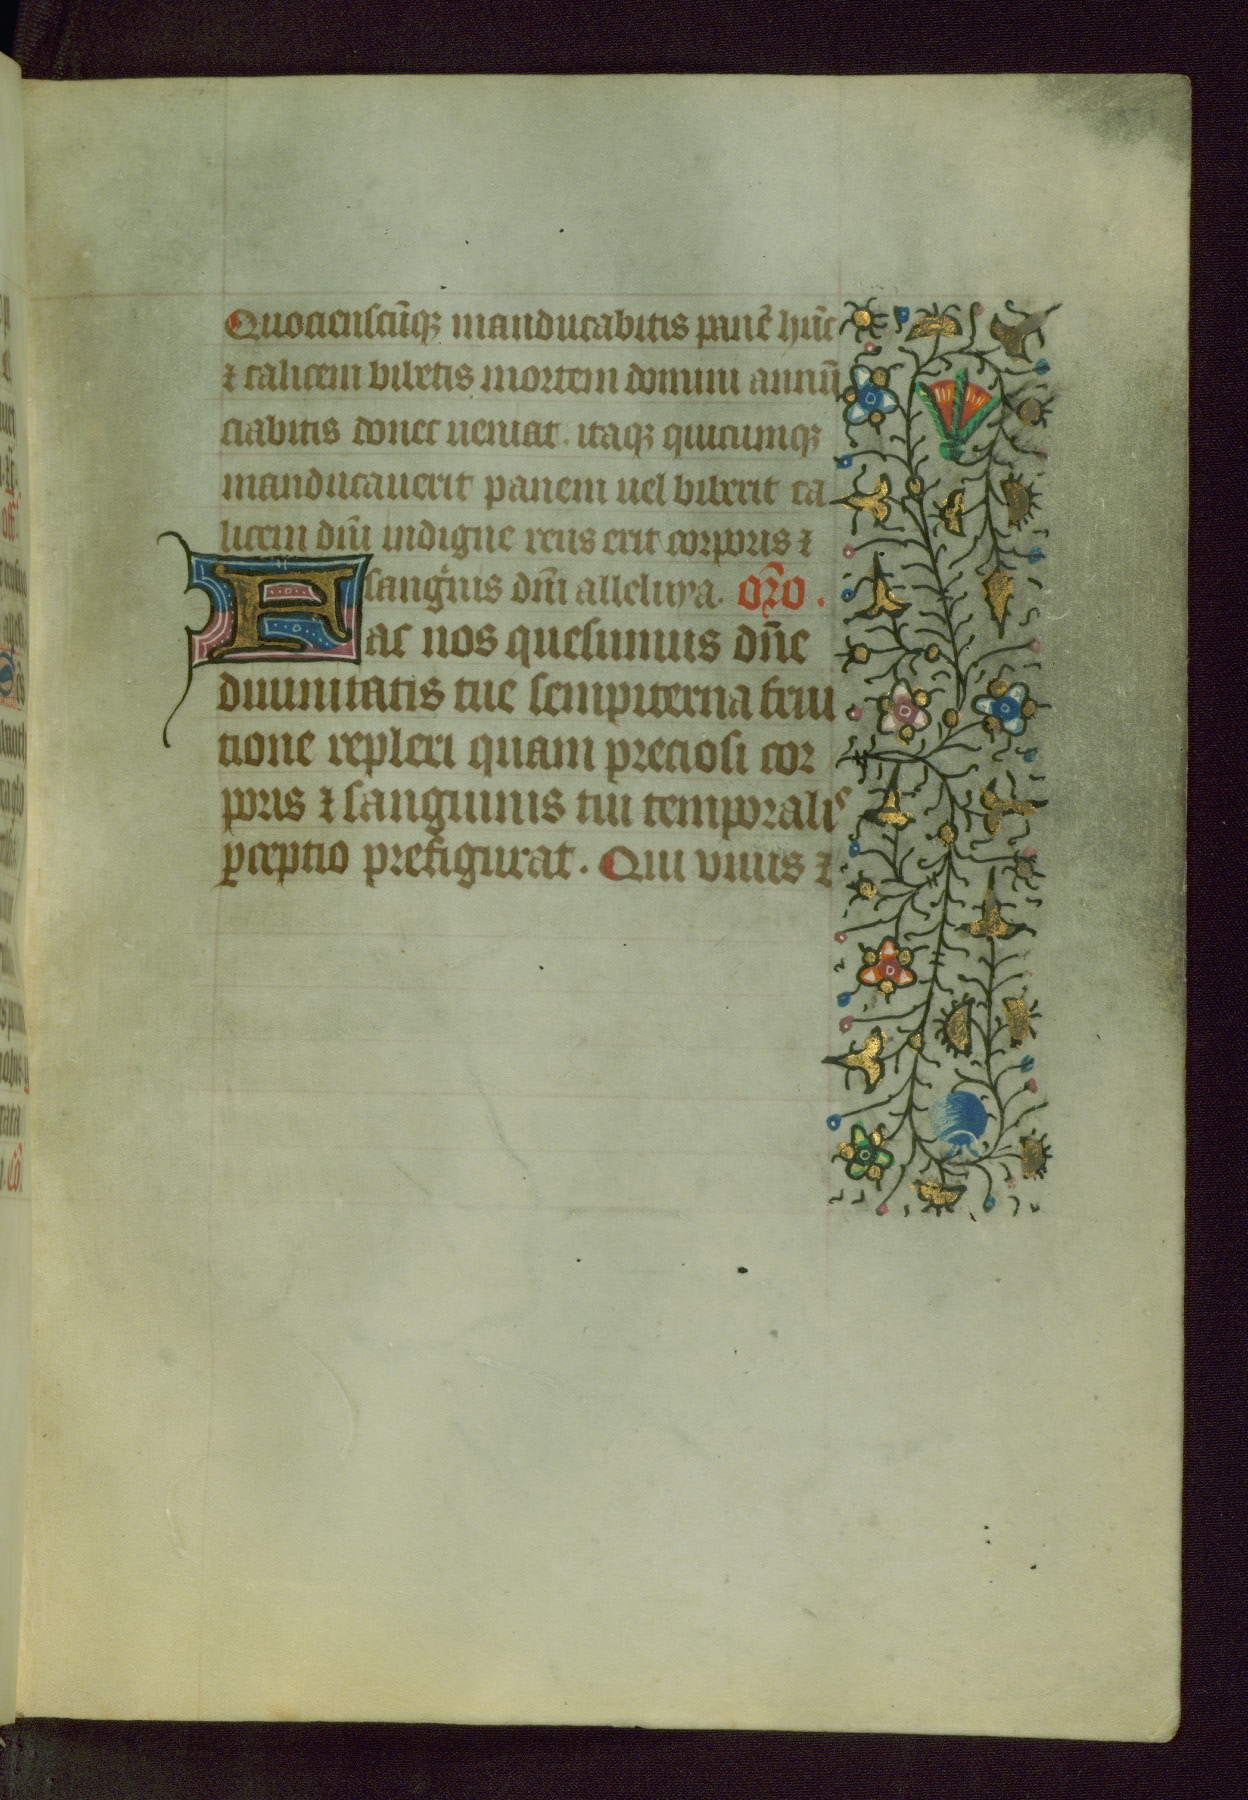 Quociẽscũqꝫ manducabitis panẽ hũc
⁊ calicem bibetis mortem domini annũ
ciabitis donec ueniat. itaqꝫ quicumqꝫ
manducauerit panem uel biberit ca
licem dñi indigne reus erit corporis ⁊
sanguis dñi alleluya. orõ.
Fac nos quesumus dñe
diuinitatis tue sempiterna frui
tione repleri quam preciosi cor
poris ⁊ sanguinis tui temporalis
ꝑceptio prefigurat. Qui viuis ⁊